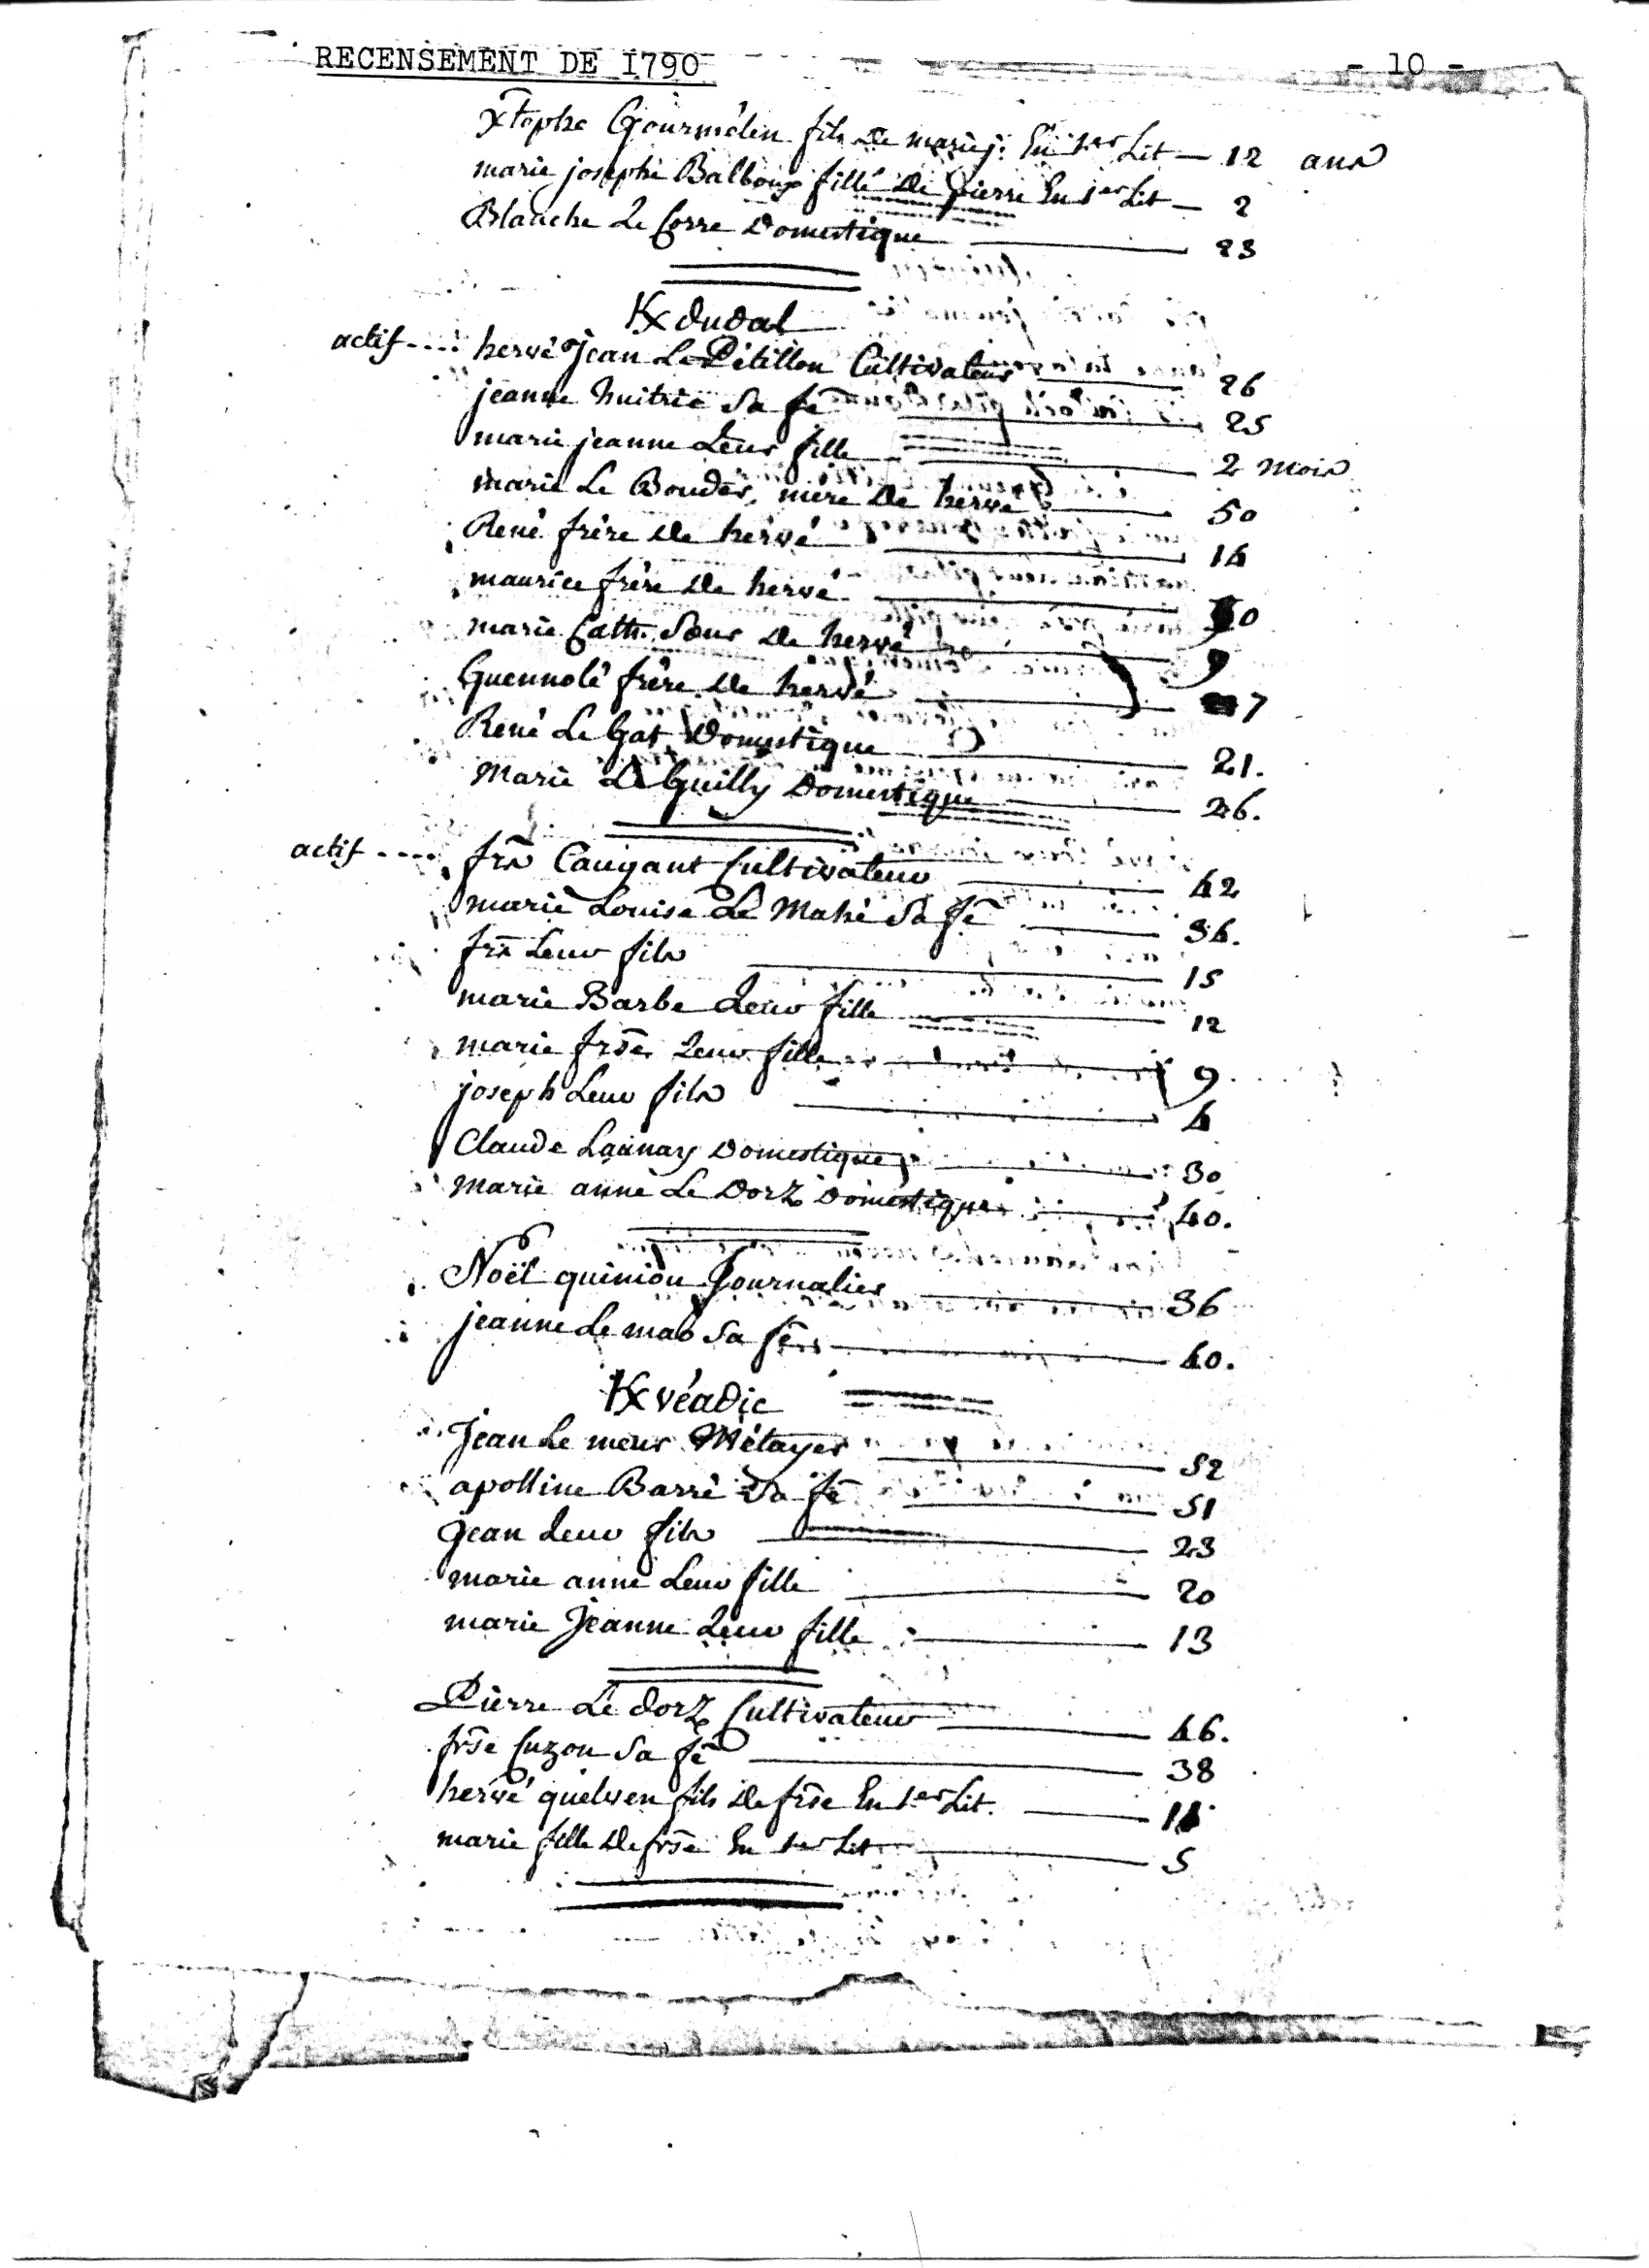 RECENSEMENT DE I790
- 10 -
xtophe Gourmelen fils de marie j. En 1er Lit — 12 ans
marie josephe Balbous fille De pierre En 1er Lit — 2
Blanche Le Corre Domestique — 23
Kdudal
actif .... hervé Jean Le Pétillon Cultivateur — 26
jeanne huitric Sa fe — 25
marie jeanne Leur fille — 2 mois
marie Le Bouder, mere De hervé — 50
René frère de hervé — 14
maurice frère De hervé — 10
marie Cath. Sœur de hervé — 9
Guennolé frère De hervé — 7
René Le Gat Domestique — 21.
Marie Le Guilly Domestique — 26.
actif .... frs Caugant Cultivateur — 42
marie Louise Le Mahé Sa fe — 34.
frs Leur fils — 15
marie Barbe Leur fille — 12
marie frse Leur fille — 9
joseph Leur fils — 4
Claude Launay Domestique — 30
Marie anne Le Dorz Domestique — 40.
Noël quiniou Journalier — 36
jeanne Le mao Sa fe — 40.
Kvéadic
Jean Le meur Métayer — 52
apolline Barré Sa fe — 51
Jean Leur fils — 23
marie anne Leur fille — 20
marie Jeanne Leur fille — 13
Pierre Le Dorz Cultivateur — 46.
frse Cuzon Sa fe — 38
hervé quelven fils De frse En 1er Lit. — 14
marie fille De frse En 1er Lit — 5